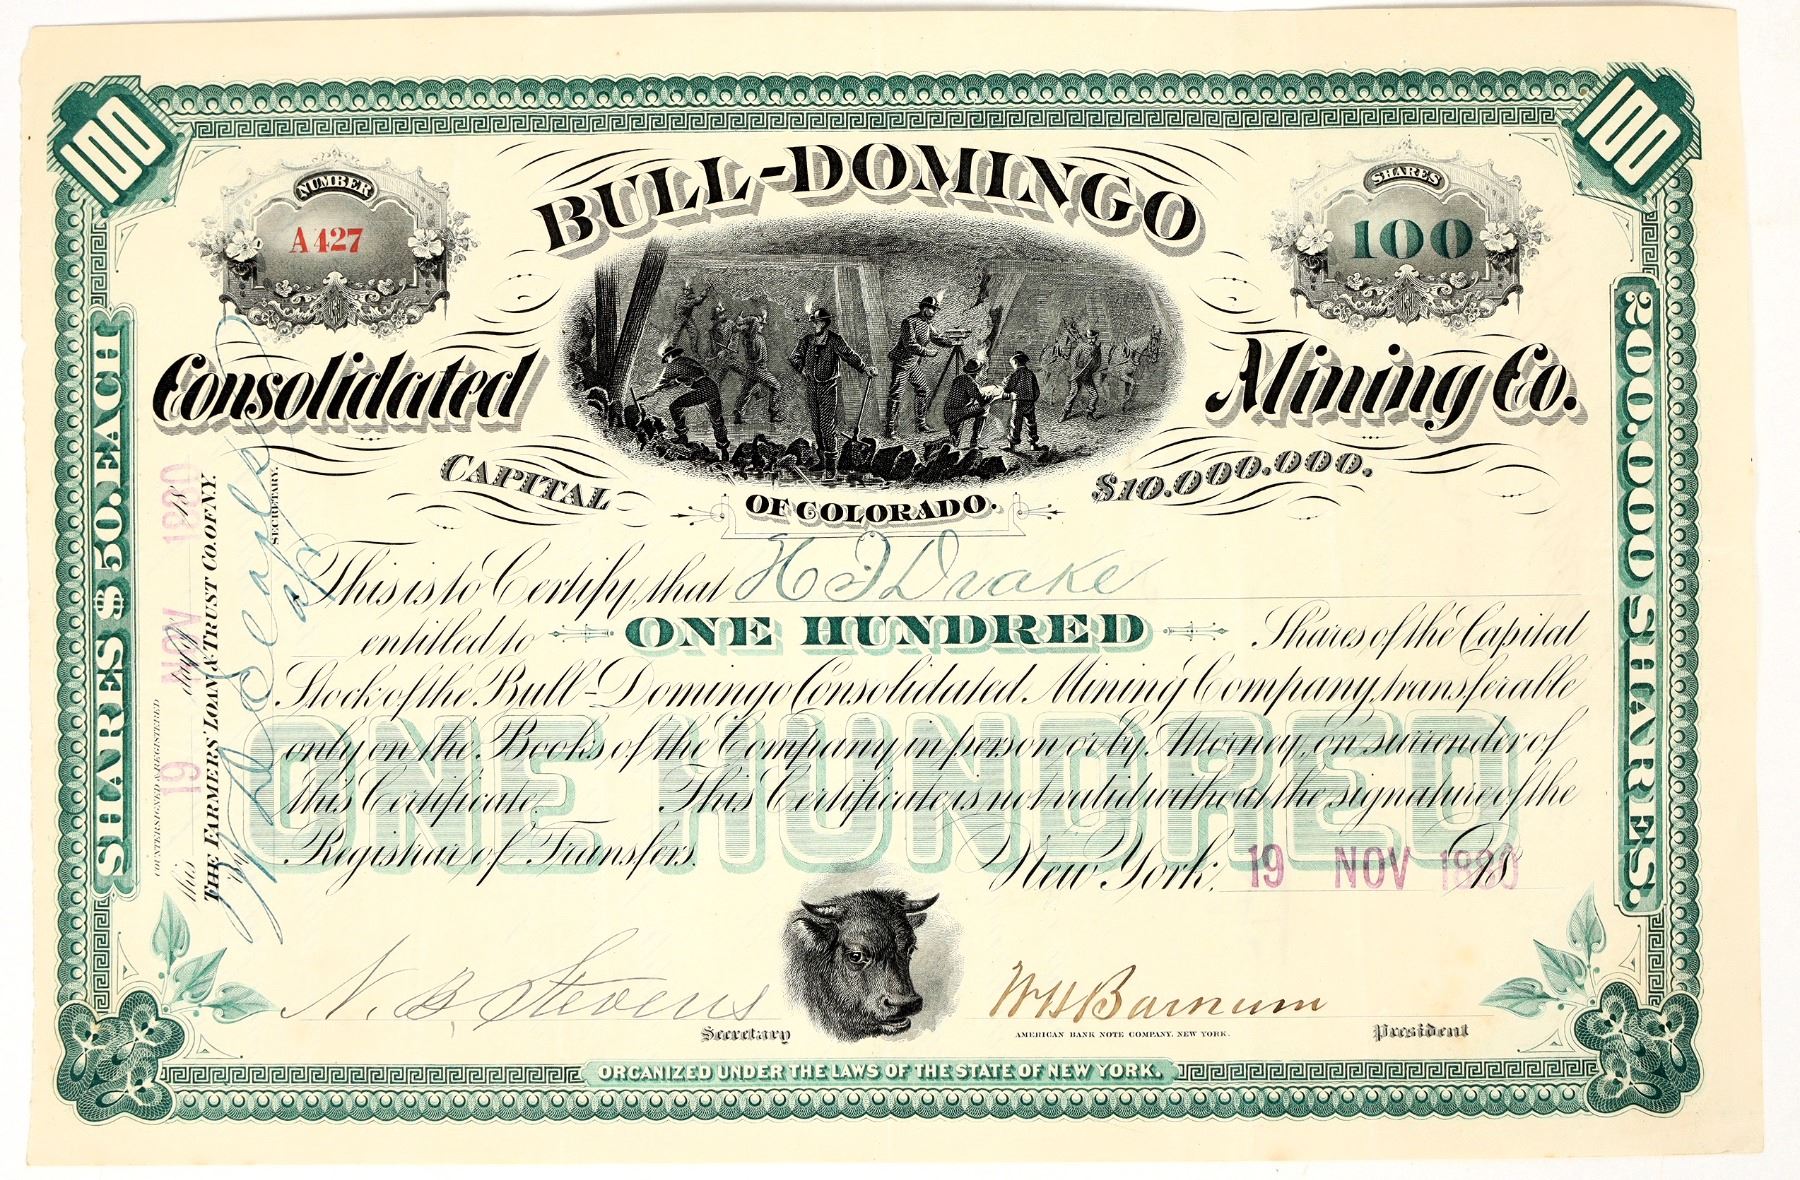 100
100
NUMBER
A 427
SHARES
100
BULL-DOMINGO
Consolidated
Mining Co.
CAPITAL
$10.000.000.
OF COLORADO.
This is to Certify, that H J Drake
entitled to ONE HUNDRED Shares of the Capital
Stock of the Bull-Domingo Consolidated Mining Company, transferable
only on the Books of the Company in person or by Attorney, on surrender of
this Certificate. This Certificate is not valid without the signature of the
Registrar of Transfers. New York, 19 NOV 1880 18
ONE HUNDRED
N. B. Stevens
Secretary
W H Barnum
AMERICAN BANK NOTE COMPANY, NEW YORK.
President
ORGANIZED UNDER THE LAWS OF THE STATE OF NEW YORK.
SHARES $50. EACH
200.000 SHARES.
COUNTERSIGNED & REGISTERED
this 19 day of NOV 1880 18
THE FARMERS' LOAN & TRUST CO. OF N.Y.
by
SECRETARY.